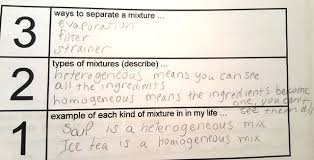 3
ways to separate a mixture ...
evaporation
filter
strainer
2
types of mixtures (describe) ...
heterogeneous means you can see
all the ingredients
homogeneous means the ingredients become
one, you can't
see them all
1
example of each kind of mixture in in my life ...
Soup is a heterogeneous mix
Ice tea is a homogeneous mix